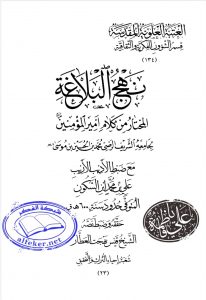 العتبة العلوية المقدسة
قسم الشؤون الفكرية والثقافية
(١٣٤)
نهج البلاغة
المختار من كلام أمير المؤمنين
لجامعه الشريف الرضي محمد بن الحسين بن موسى
مع ضبط الأديب الأريب
علي بن محمد بن السكون
المتوفى حدود سنة ٦٠٠ هـ ق
شبكة الفكر
alfeker.net
تحقيق وضبط نصه
الشيخ قيس بهجت العطار
شعبة إحياء التراث والتحقيق
(٢٣)